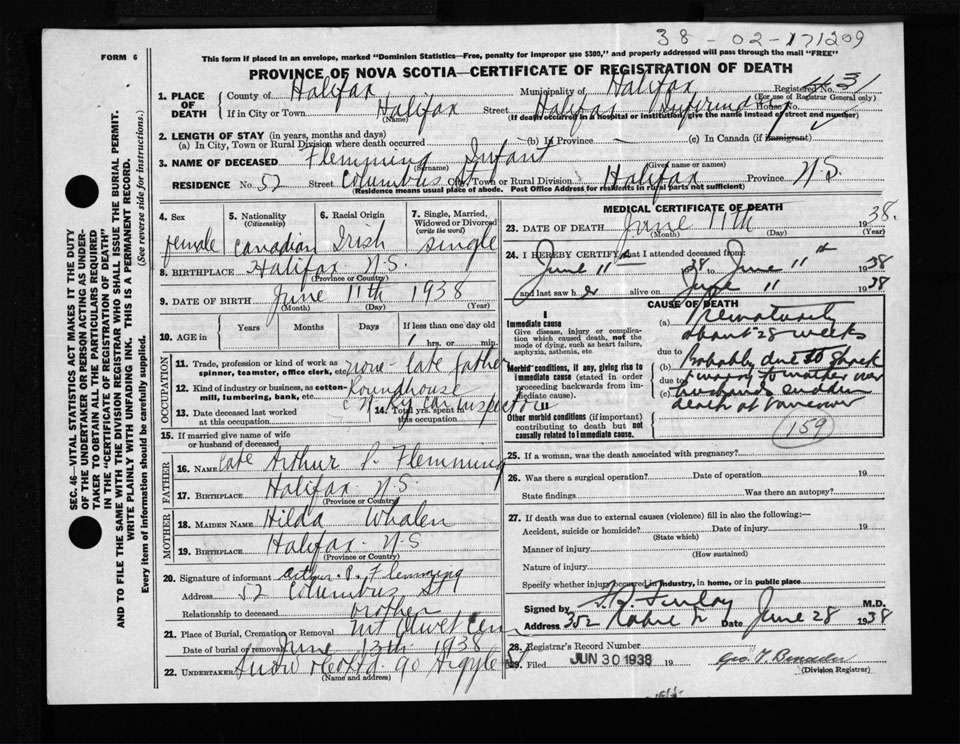 38 - 02 - 171209
FORM 6
This form if placed in an envelope, marked "Dominion Statistics—Free, penalty for improper use $300," and properly addressed will pass through the mail "FREE"
PROVINCE OF NOVA SCOTIA—CERTIFICATE OF REGISTRATION OF DEATH
1. PLACE OF DEATH
County of Halifax Municipality of Halifax Registered No. 431
(For use of Registrar General only)
If in City or Town Halifax Street Halifax Infirmary House No.
(Name) (If death occurred in a hospital or institution, give the name instead of street and number)
2. LENGTH OF STAY (in years, months and days)
(a) In City, Town or Rural Division where death occurred (b) In Province — (c) In Canada (if Immigrant)
3. NAME OF DECEASED Flemming Infant
(Surname) (Given name or names)
RESIDENCE No. 52 Street Columbus St City, Town or Rural Division Halifax Province N.S.
(Residence means usual place of abode. Post Office Address for residents in rural parts not sufficient)
SEC. 46—VITAL STATISTICS ACT MAKES IT THE DUTY
OF THE UNDERTAKER OR PERSON ACTING AS UNDER-
TAKER TO OBTAIN ALL THE PARTICULARS REQUIRED
IN THE "CERTIFICATE OF REGISTRATION OF DEATH"
AND TO FILE THE SAME WITH THE DIVISION REGISTRAR WHO SHALL ISSUE THE BURIAL PERMIT.
WRITE PLAINLY WITH UNFADING INK. THIS IS A PERMANENT RECORD.
Every item of information should be carefully supplied. (See reverse side for instructions.)
4. Sex 5. Nationality 6. Racial Origin 7. Single, Married, Widowed or Divorced
(Citizenship) (write the word)
female Canadian Irish single
8. BIRTHPLACE Halifax N.S.
(Province or Country)
9. DATE OF BIRTH June 11th 1938
(Month) (Day) (Year)
10. AGE in Years Months Days If less than one day old
1 hrs. or min.
OCCUPATION
11. Trade, profession or kind of work as spinner, teamster, office clerk, etc. none - late father
12. Kind of industry or business, as cotton-mill, lumbering, bank, etc. Roundhouse
13. Date deceased last worked at this occupation
14. Total yrs. spent in this occupation
15. If married give name of wife or husband of deceased
FATHER
16. NAME late Arthur P. Flemming
17. BIRTHPLACE Halifax N.S.
(Province or Country)
MOTHER
18. MAIDEN NAME Hilda Whalen
19. BIRTHPLACE Halifax N.S
(Province or Country)
20. Signature of informant Arthur P. Flemming
Address 52 Columbus St
Relationship to deceased brother
21. Place of Burial, Cremation or Removal Mt Olivet Cem
Date of burial or removal June 13th 1938
22. UNDERTAKER Snow & Co Ltd. 90 Argyle St
(Name and address)
MEDICAL CERTIFICATE OF DEATH
23. DATE OF DEATH June 11th 1938.
(Month) (Day) (Year)
24. I HEREBY CERTIFY that I attended deceased from:
June 11th 1938 to June 11th 1938
and last saw her alive on June 11 1938
CAUSE OF DEATH
I
Immediate cause
Give disease, injury or complication which caused death, not the mode of dying, such as heart failure, asphyxia, asthenia, etc.
(a) Prematurity
about 28 weeks
Morbid conditions, if any, giving rise to immediate cause (stated in order proceeding backwards from immediate cause).
due to (b) Probably due to shock
due to (c) & worry to mother over
husband's sudden
death at Vancouver
II
Other morbid conditions (if important) contributing to death but not causally related to immediate cause.
(159)
25. If a woman, was the death associated with pregnancy?
26. Was there a surgical operation? Date of operation 19
State findings Was there an autopsy?
27. If death was due to external causes (violence) fill in also the following:—
Accident, suicide or homicide? Date of injury 19
(State which)
Manner of injury
(How sustained)
Nature of injury
Specify whether injury occurred in industry, in home, or in public place
Signed by M.D.
Address 352 Robie St Date June 28 1938
28. Registrar's Record Number
29. Filed JUN 30 1938 19
(Division Registrar)